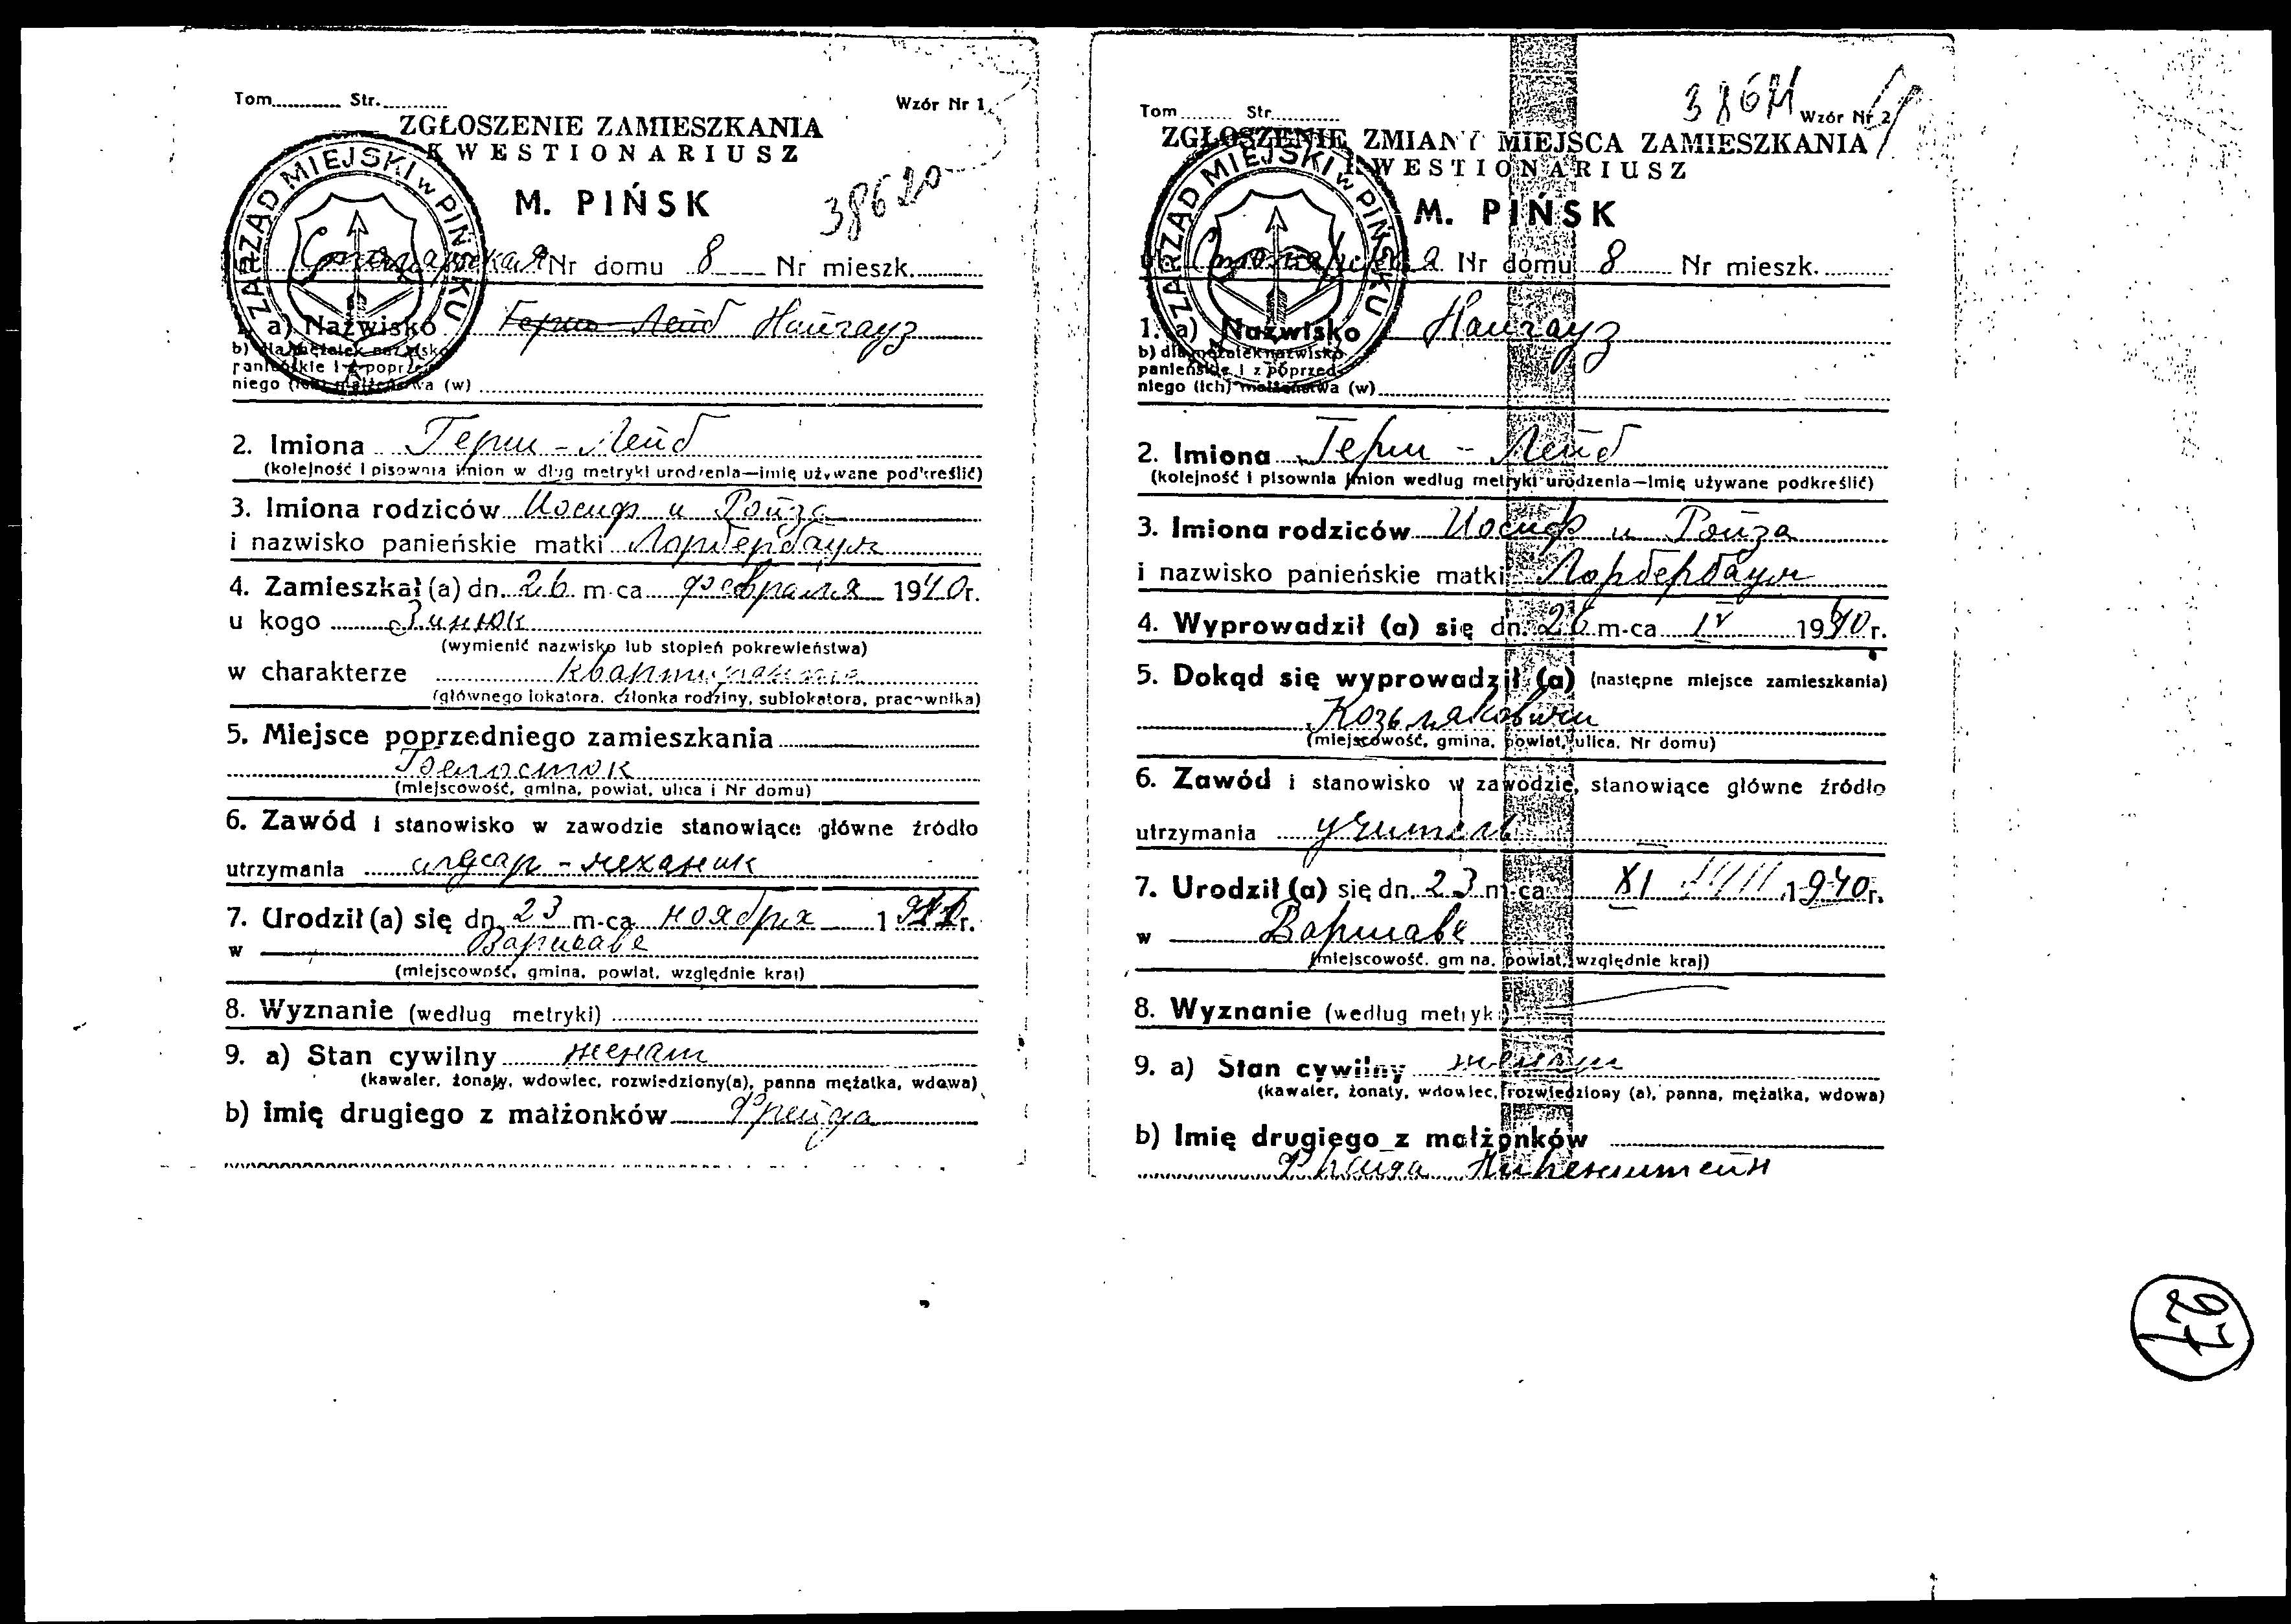 Tom............ Str...........
Wzór Nr 1
ZGŁOSZENIE ZAMIESZKANIA
KWESTIONARIUSZ
M. PIŃSK
38620
ZARZĄD MIEJSKI w PIŃSKU
Nr domu 8 Nr mieszk.
1. a) Nazwisko Герш Лейб Найгауз
b) nazwisko
panieńskie i z poprzed-
niego (ich) małżeństwa (w)
2. Imiona Герш - Лейб
(kolejność i pisownia imion w dług metryki urodzenia—imię używane podkreślić)
3. Imiona rodziców Иосиф и Ройза
i nazwisko panieńskie matki
4. Zamieszkał (a) dn. 26 m-ca февраля 1940 r.
u kogo Зинюк
(wymienić nazwisko lub stopień pokrewieństwa)
w charakterze квартиранта
(głównego lokatora, członka rodziny, sublokatora, pracownika)
5. Miejsce poprzedniego zamieszkania
Белосток
(miejscowość, gmina, powiat, ulica i Nr domu)
6. Zawód i stanowisko w zawodzie stanowiące główne źródło
utrzymania слесарь - механик
7. Urodził (a) się dn. 23 m-ca ноября 1 r.
w Варшаве
(miejscowość, gmina, powiat, względnie kraj)
8. Wyznanie (według metryki)
9. a) Stan cywilny женат
(kawaler, żonaty, wdowiec, rozwiedziony(a), panna mężatka, wdowa)
b) imię drugiego z małżonków Фрейда
Tom......... Str............
38671 Wzór Nr 2
ZGŁOSZENIE ZMIANY MIEJSCA ZAMIESZKANIA
KWESTIONARIUSZ
M. PIŃSK
ZARZĄD MIEJSKI w PIŃSKU
Nr domu 8 Nr mieszk.
1. a) Nazwisko Найгауз
b) dla mężatek nazwisko
panieńskie i z poprzed-
niego (ich) małżeństwa (w)
2. Imiona Герш - Лейб
(kolejność i pisownia imion według metryki urodzenia—imię używane podkreślić)
3. Imiona rodziców Иосиф и Ройза
i nazwisko panieńskie matki
4. Wyprowadził (a) się dn. 26 m-ca IV 1940 r.
5. Dokąd się wyprowadził (a) (następne miejsce zamieszkania)
Козьлякович
(miejscowość, gmina, powiat, ulica, Nr domu)
6. Zawód i stanowisko w zawodzie, stanowiące główne źródło
utrzymania учитель
7. Urodził (a) się dn. 23 m-ca XI 1940 r.
w Варшаве
(miejscowość, gmina, powiat, względnie kraj)
8. Wyznanie (według metryki)
9. a) Stan cywilny женат
(kawaler, żonaty, wdowiec, rozwiedziony (a), panna, mężatka, wdowa)
b) Imię drugiego z małżonków
Фрейда
27